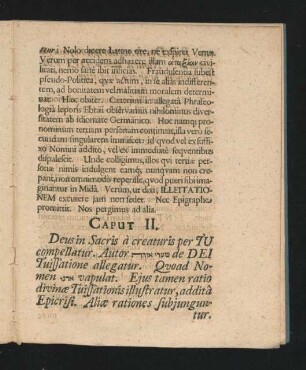 tur: Nolo dicere Latine ore, ne
Verum per accidens adhærere istam civi-
litati, nemo sane ibit inficias. Fraudulentia subest
pseudo-Politica, quæ actum, in se aliàs indifferen-
tem, ad bonitatem vel malitiam moralem determi-
nat. Hoc obiter. Cæterum in allegata Phraseo-
logia leporis Ebræi observamus nihilominus diver-
sitatem ab idiomate Germanico. Hoc namque pro-
nominum tertiam personam continuat, illa vero se-
cundam singularem immiscet: id quod vel ex suffi-
xo Nomini addito, vel ex immediatè sequentibus
dispalescit. Unde colligimus, illos qui tertiæ per-
sonæ nimis indulgent eamq; nunquam non cre-
pant, non omnem modo reperisse, quod pueri sibi ima-
ginantur in Midâ. Verum, ut dixi, ILLEITATIO-
NEM excutere jam non sedet. Nec Epigraphe
promittit. Nos pergimus ad alia.
CAPUT II.
Deus in Sacris à creaturis per TU
compellatur. Autor de DEI
Tuissatione allegatur. Quoad No-
men vapulat. Ejus tamen ratio
divinæ Tuissationis illustratur, additâ
Epicrisi. Aliæ rationes subjungun-
tur.